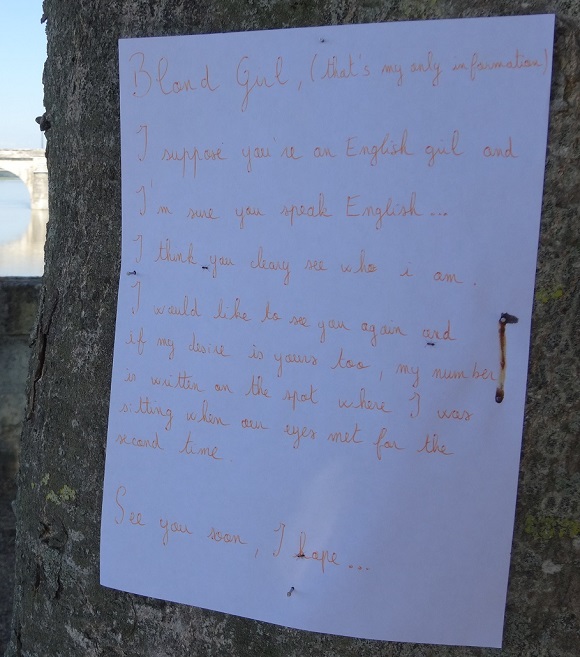 Blond Girl, (that's my only information)
I suppose you're an English girl and
I'm sure you speak English...
I think you cleary see who i am.
I would like to see you again and
if my desire is yours too, my number
is written on the spot where I was
sitting when our eyes met for the
second time.
See you soon, I hope...